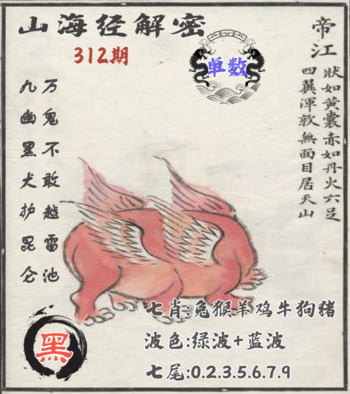 山海经解密
312期
单数
帝江
状如黄囊赤如丹火六足
四翼浑敦無面目居天山
万鬼不敢越雷池
九幽黑犬护昆仑
七肖:兔猴羊鸡牛狗猪
波色:绿波+蓝波
七尾:0.2.3.5.6.7.9
黑